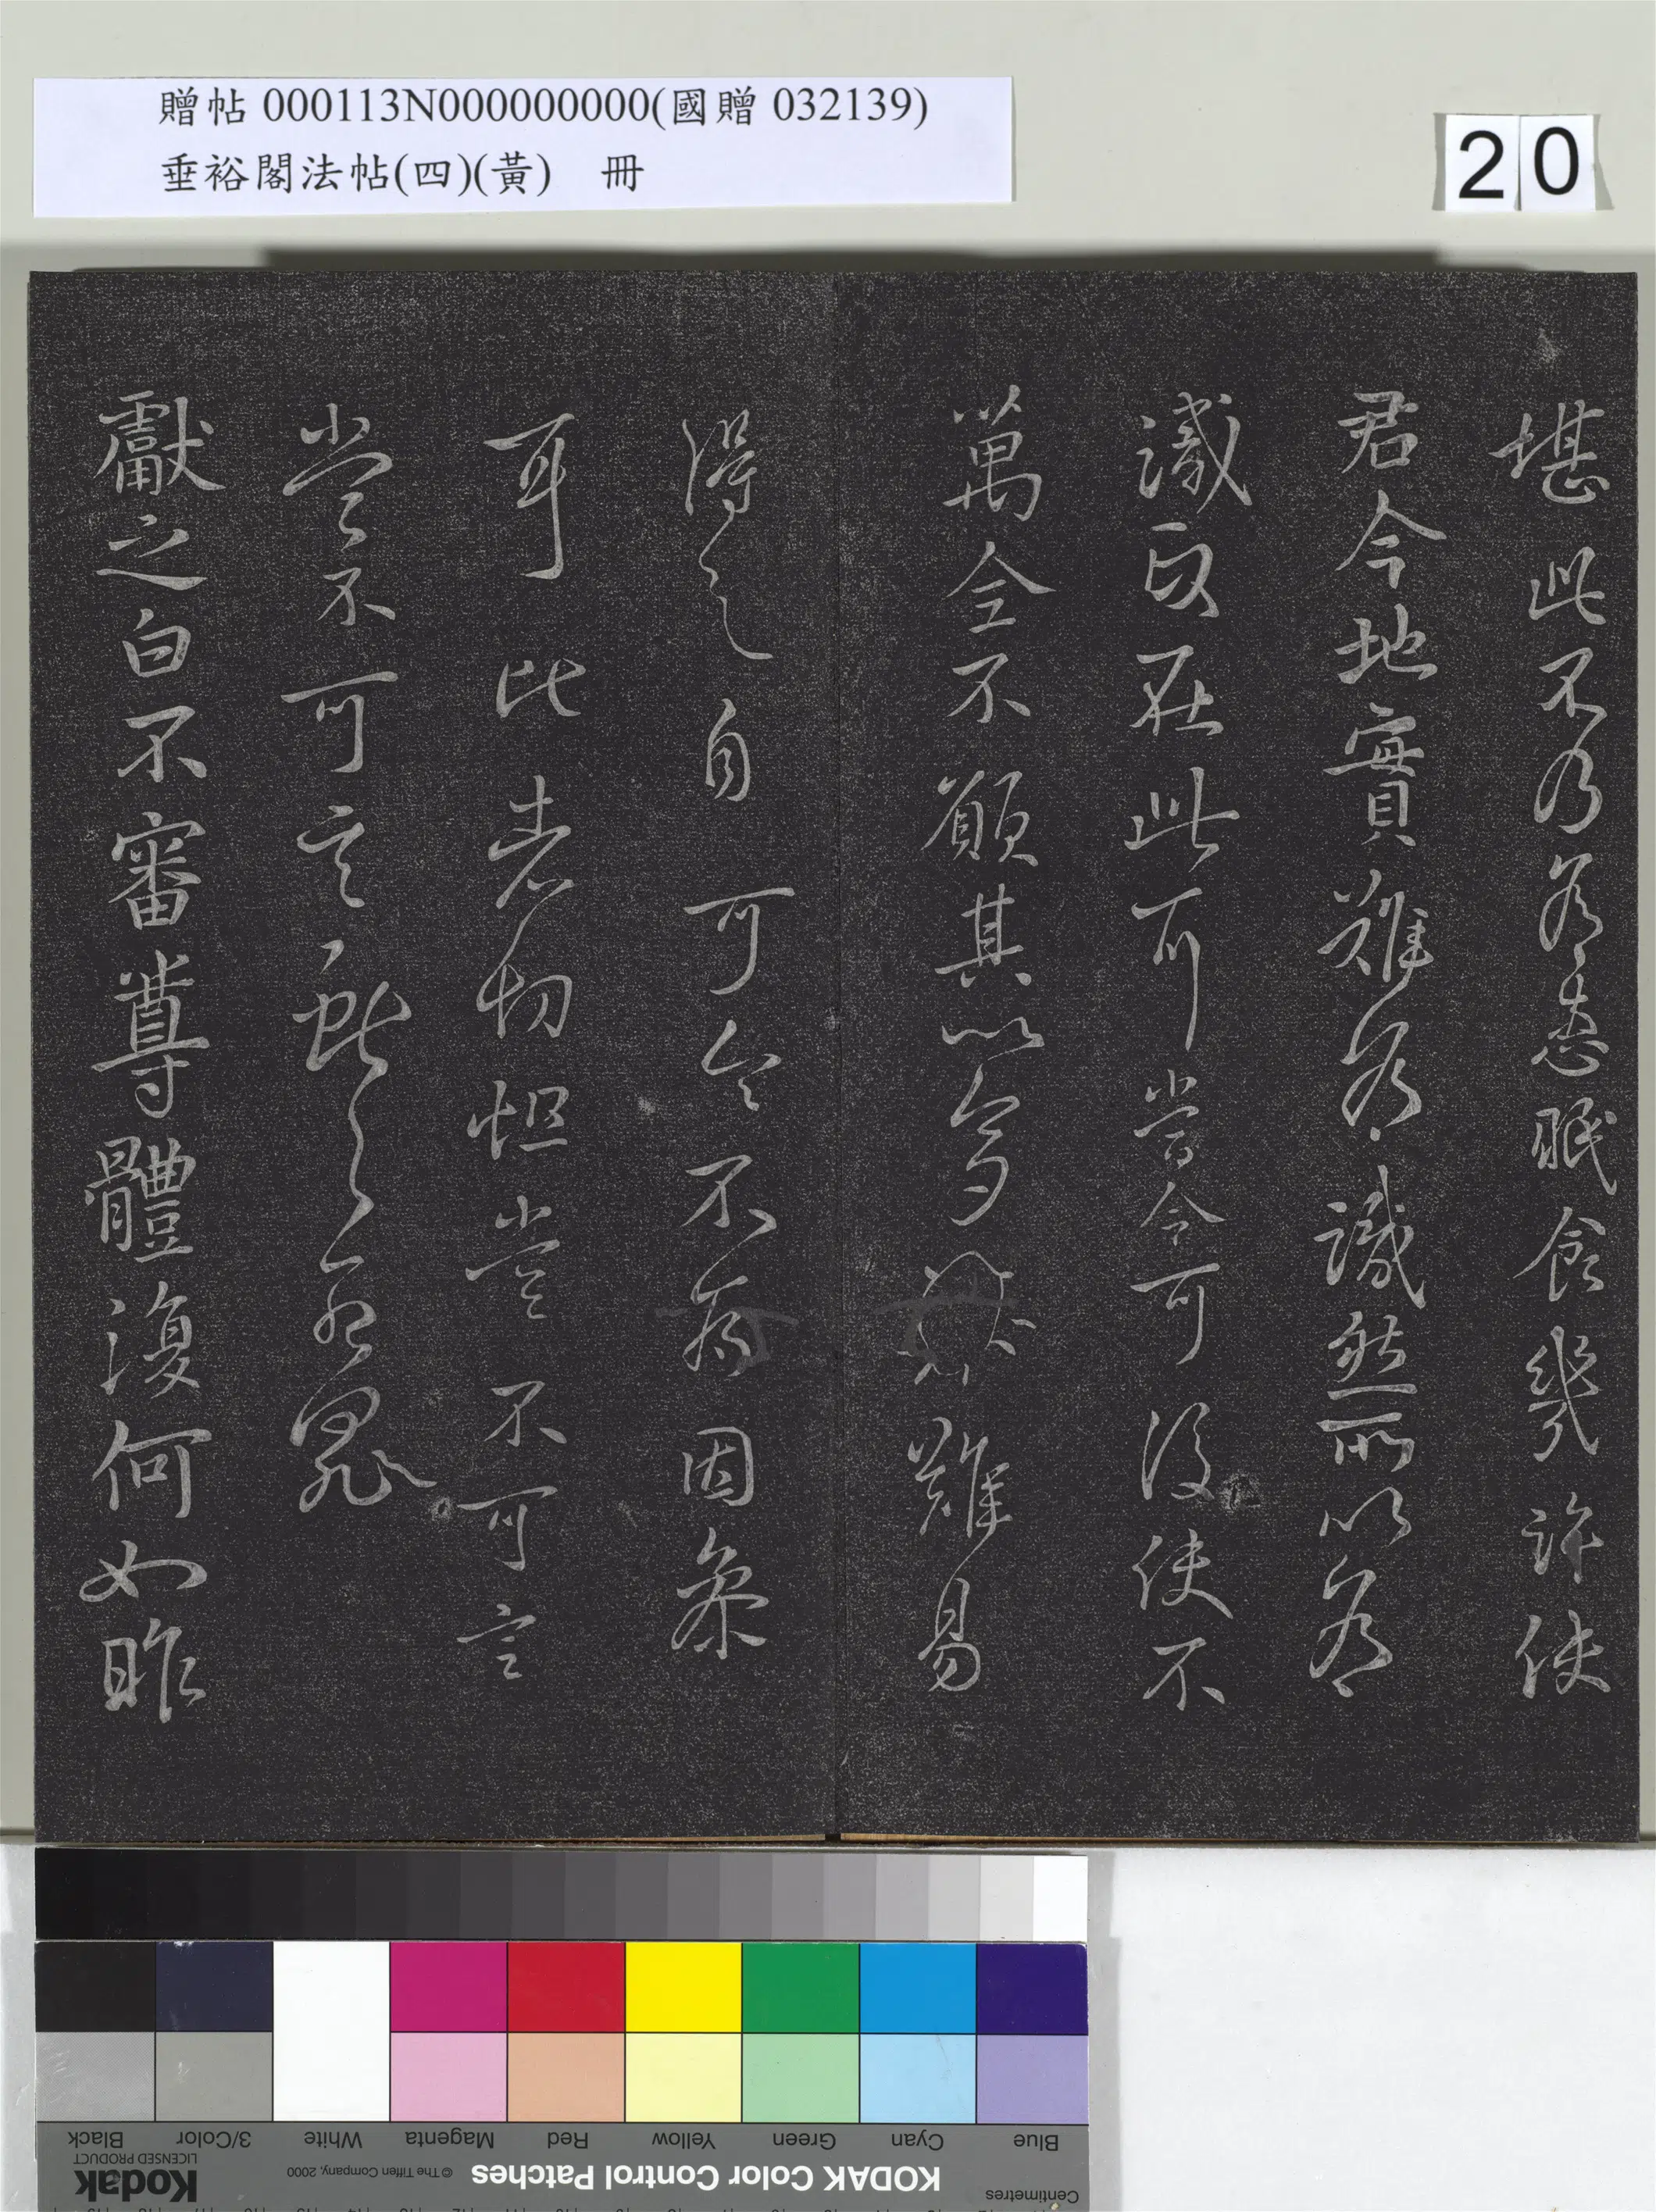 贈帖 000113N000000000(國贈 032139)
垂裕閣法帖(四)(黃) 冊
20
堪此不乃為患眠食幾許使
君今地實難為識然所以為
識政在此耳當令可復使不
萬全不願其以多 難易
得之自可令不為因
耳比者切怛豈不可言
豈不可言
獻之白不審尊體復何如昨
Black
3/Color
White
Magenta
Red
Yellow
Green
Cyan
Blue
Kodak
LICENSED PRODUCT
© The Tiffen Company, 2000
KODAK Color Control Patches
Centimetres